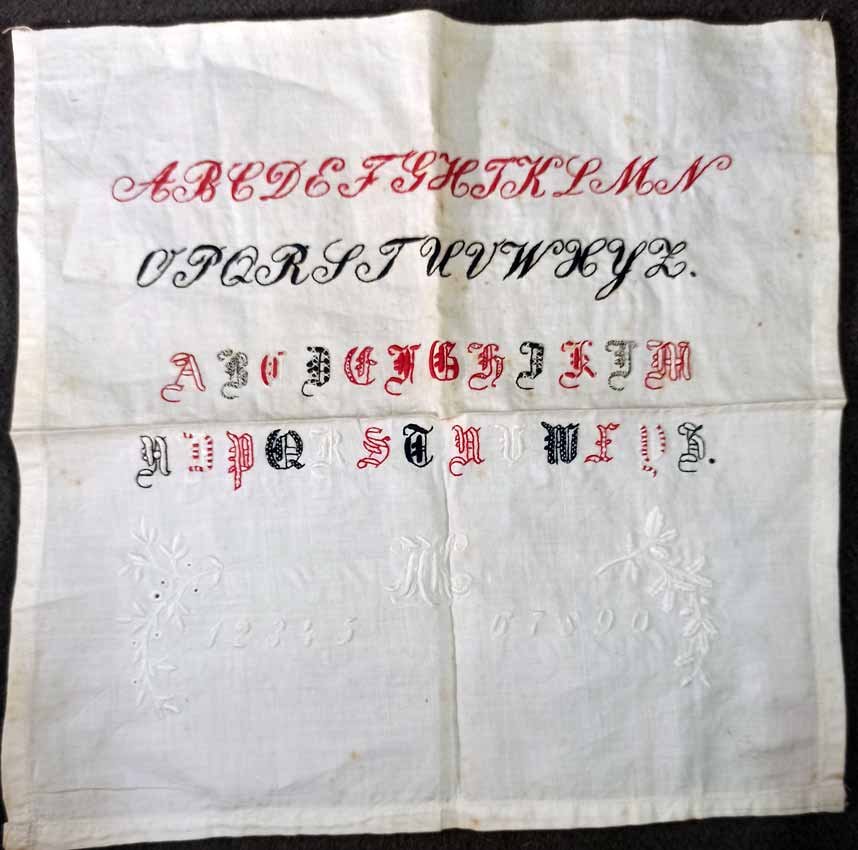 ABCDEFGHIKLMN
OPQRSTUVWXYZ.
ABCDEFGHIKLM
NOPQRSTUVWXYZ.
12345 67890